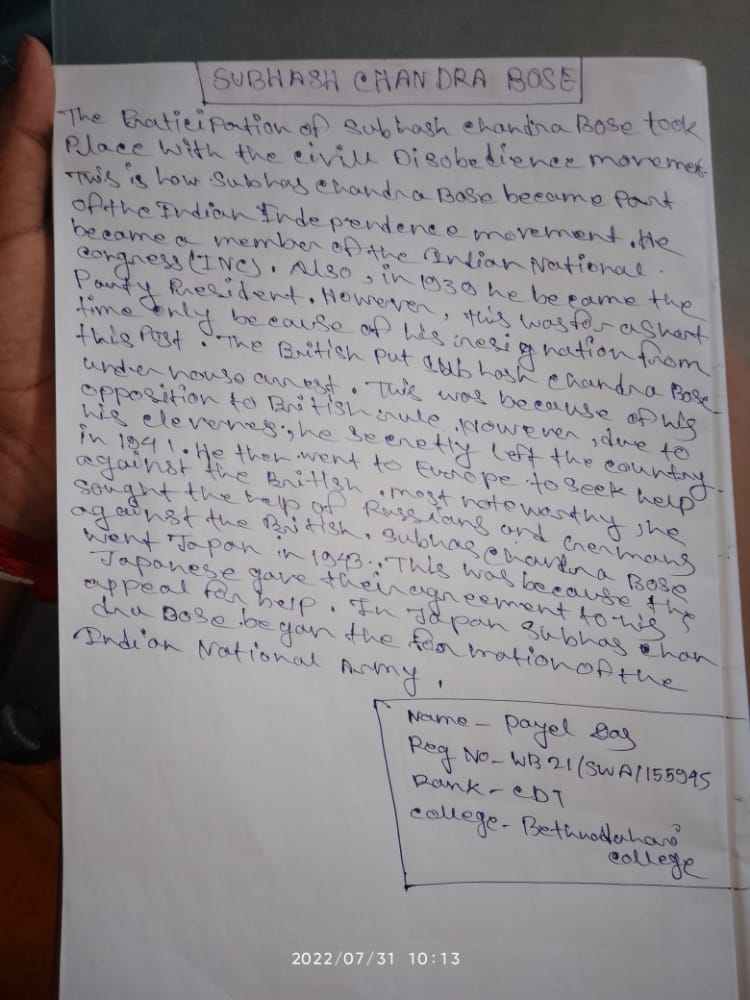 SUBHASH CHANDRA BOSE
The Praticipation of Subhash chandra Bose took
Place with the civill Disobedience movement.
This is how Subhas chandra Bose became Part
of the Indian Independence movement. He
became a member of the Indian National.
congress (INC). Also, in 1939 he became the
Party President. However, this was for a short
time only because of his resignation from
this Post. The British Put Subhash chandra Bose
under house arrest. This was because of his
opposition to British rule. However, due to
his cleverness, he secretly left the country
in 1941. He then went to Europe to seek help
against the British. most noteworthy, he
sought the help of Russians and Germans
against the British. Subhas chandra Bose
went Japan in 1943. This was because the
Japanese gave their agreement to his
appeal for help. In Japan Subhas chan
dra Bose began the formation of the
Indian National Army.
Name - Payel Das
Reg No - WB21/SWA/155945
Rank - CDT
college - Bethuadahari
college
2022/07/31 10:13